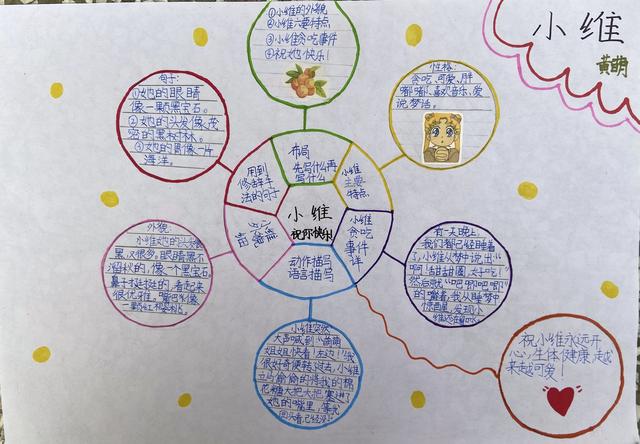 小维
黄明
①小维的外貌
②小维主要特点
③小维贪吃事件
④祝她快乐!
句子:
①她的眼睛
像一颗黑宝石。
②她的头发像茂
密的黑树林。
③她的胃像一片
海洋。
性格:
贪吃、可爱、胖
嘟嘟、喜欢音乐、爱
说梦话。
布局
先写什么再
写什么
用到
修辞手
法的句子
小维
主要
特点
小维
祝你快乐
小维
贪吃
事件
详
动作描写
语言描写
外貌:
小维她的头发
黑又很多,眼睛黑不
溜秋的,像一个黑宝石,
鼻子挺挺的,看起来
很优雅。嘴巴外像
一颗红
有一天晚上,
我们都已经睡着
了,小维从梦中说出:“
啊!甜甜圈,太好吃!”
然后就“吧唧吧唧”
的嚼着,我从睡梦中
惊醒,发现小
小维突然
大声喊到:“萌萌
姐姐快看!左边!”我
很好奇便转过去,小维
立马偷偷的将我的棉
花糖大把大把塞进了
她的嘴里,等我
回头看,已经没了
祝小维永远开
心,生体健康,越
来越可爱!